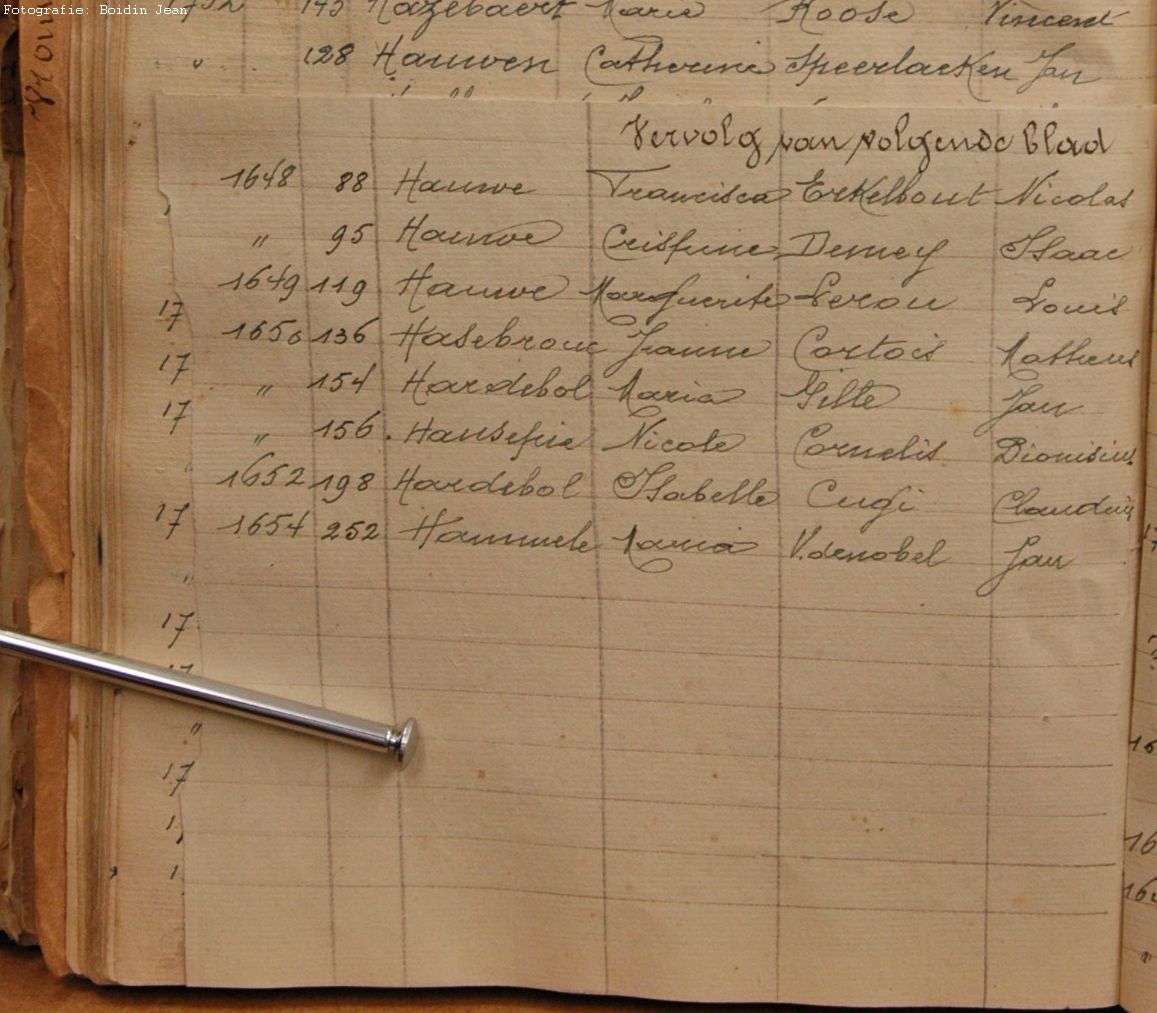 Fotografie: Boidin Jean
Hazebaert Marie Roose Vincent
" 128 Hauwen Catherine Speerlaeken Jan
Vervolg van volgende blad
1648 88 Hauwe Francisca Erkelbout Nicolas
" 95 Hauwe Crispine Demey Isaac
1649 119 Hauwe Marguerite Lerou Louis
17
1650 136 Hasebrouc Jeanne Cortois Matheus
17
" 154 Hardebol Maria Gille Jan
17
" 156 Nicole Cornelis Dionisius
1652 198 Hardebol Isabelle Cugi
17
1654 252 Maria V.denobel Jan
"
17
"
17